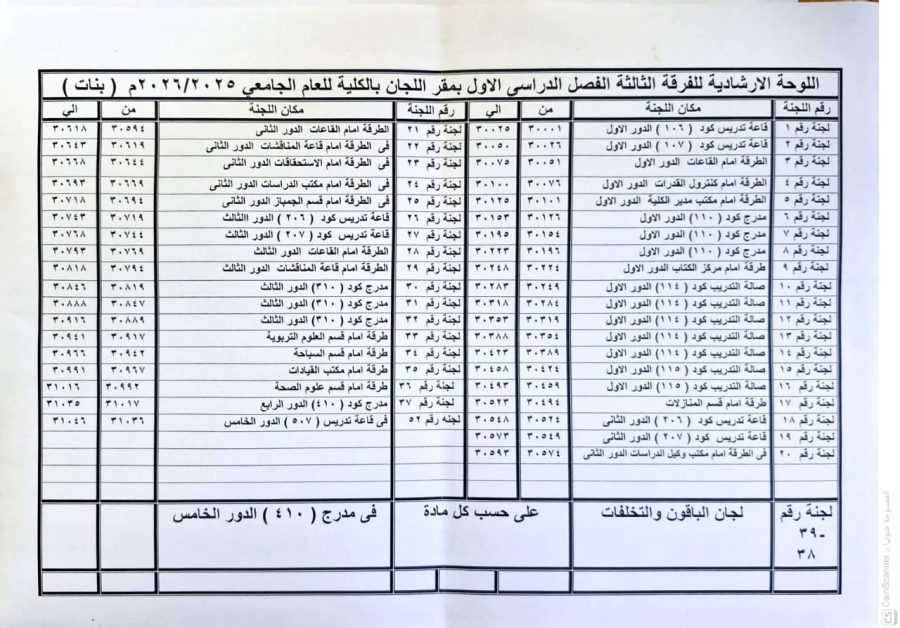 اللوحة الارشادية للفرقة الثالثة الفصل الدراسي الاول بمقر اللجان بالكلية للعام الجامعي ٢٠٢٦/٢٠٢٥م ( بنات )
رقم اللجنة مكان اللجنة من الي رقم اللجنة مكان اللجنة من الي
لجنة رقم ١ قاعة تدريس كود ( ١٠٦ ) الدور الاول ٣٠٠٠١ ٣٠٠٢٥ لجنة رقم ٢١ الطرقة امام القاعات الدور الثانى ٣٠٥٩٤ ٣٠٦١٨
لجنة رقم ٢ قاعة تدريس كود ( ١٠٧ ) الدور الاول ٣٠٠٢٦ ٣٠٠٥٠ لجنة رقم ٢٢ فى الطرقة امام قاعة المناقشات الدور الثانى ٣٠٦١٩ ٣٠٦٤٣
لجنة رقم ٣ الطرقة امام القاعات الدور الاول ٣٠٠٥١ ٣٠٠٧٥ لجنة رقم ٢٣ فى الطرقة امام الاستحقاقات الدور الثانى ٣٠٦٤٤ ٣٠٦٦٨
لجنة رقم ٤ الطرقة امام كنترول القدرات الدور الاول ٣٠٠٧٦ ٣٠١٠٠ لجنة رقم ٢٤ فى الطرقة امام مكتب الدراسات الدور الثانى ٣٠٦٦٩ ٣٠٦٩٣
لجنة رقم ٥ الطرقة امام مكتب مدير الكلية الدور الاول ٣٠١٠١ ٣٠١٢٥ لجنة رقم ٢٥ فى الطرقة امام قسم الجمباز الدور الثانى ٣٠٦٩٤ ٣٠٧١٨
لجنة رقم ٦ مدرج كود ( ١١٠ ) الدور الاول ٣٠١٢٦ ٣٠١٥٣ لجنة رقم ٢٦ قاعة تدريس كود ( ٢٠٦ ) الدور االثالث ٣٠٧١٩ ٣٠٧٤٣
لجنة رقم ٧ مدرج كود ( ١١٠ ) الدور الاول ٣٠١٥٤ ٣٠١٩٥ لجنة رقم ٢٧ قاعة تدريس كود ( ٢٠٧ ) الدور الثالث ٣٠٧٤٤ ٣٠٧٦٨
لجنة رقم ٨ مدرج كود ( ١١٠ ) الدور الاول ٣٠١٩٦ ٣٠٢٢٣ لجنة رقم ٢٨ الطرقة امام القاعات الدور الثالث ٣٠٧٦٩ ٣٠٧٩٣
لجنة رقم ٩ طرقة امام مركز الكتاب الدور الاول ٣٠٢٢٤ ٣٠٢٤٨ لجنة رقم ٢٩ الطرقة امام قاعة المناقشات الدور الثالث ٣٠٧٩٤ ٣٠٨١٨
لجنة رقم ١٠ صالة التدريب كود ( ١١٤ ) الدور الاول ٣٠٢٤٩ ٣٠٢٨٣ لجنة رقم ٣٠ مدرج كود ( ٣١٠ ) الدور الثالث ٣٠٨١٩ ٣٠٨٤٦
لجنة رقم ١١ صالة التدريب كود ( ١١٤ ) الدور الاول ٣٠٢٨٤ ٣٠٣١٨ لجنة رقم ٣١ مدرج كود ( ٣١٠ ) الدور الثالث ٣٠٨٤٧ ٣٠٨٨٨
لجنة رقم ١٢ صالة التدريب كود ( ١١٤ ) الدور الاول ٣٠٣١٩ ٣٠٣٥٣ لجنة رقم ٣٢ مدرج كود ( ٣١٠ ) الدور الثالث ٣٠٨٨٩ ٣٠٩١٦
لجنة رقم ١٣ صالة التدريب كود ( ١١٤ ) الدور الاول ٣٠٣٥٤ ٣٠٣٨٨ لجنة رقم ٣٣ طرقة امام قسم العلوم التربوية ٣٠٩١٧ ٣٠٩٤١
لجنة رقم ١٤ صالة التدريب كود ( ١١٤ ) الدور الاول ٣٠٣٨٩ ٣٠٤٢٣ لجنة رقم ٣٤ طرقة امام قسم السباحة ٣٠٩٤٢ ٣٠٩٦٦
لجنة رقم ١٥ صالة التدريب كود ( ١١٥ ) الدور الاول ٣٠٤٢٤ ٣٠٤٥٨ لجنة رقم ٣٥ طرقة امام مكتب القيادات ٣٠٩٦٧ ٣٠٩٩١
لجنة رقم ١٦ صالة التدريب كود ( ١١٥ ) الدور الاول ٣٠٤٥٩ ٣٠٤٩٣ لجنة رقم ٣٦ طرقة امام قسم علوم الصحة ٣٠٩٩٢ ٣١٠١٦
لجنة رقم ١٧ طرقة امام قسم المنازلات ٣٠٤٩٤ ٣٠٥٢٣ لجنة رقم ٣٧ مدرج كود ( ٤١٠ ) الدور الرابع ٣١٠١٧ ٣١٠٣٥
لجنة رقم ١٨ قاعة تدريس كود ( ٢٠٦ ) الدور الثانى ٣٠٥٢٤ ٣٠٥٤٨ لجنه رقم ٥٢ فى قاعة تدريس ( ٥٠٧ ) الدور الخامس ٣١٠٣٦ ٣١٠٤٦
لجنة رقم ١٩ قاعة تدريس كود ( ٢٠٧ ) الدور الثانى ٣٠٥٤٩ ٣٠٥٧٣
لجنة رقم ٢٠ فى الطرقة امام مكتب وكيل الدراسات الدور الثانى ٣٠٥٧٤ ٣٠٥٩٣
لجنة رقم لجان الباقون والتخلفات على حسب كل مادة فى مدرج ( ٤١٠ ) الدور الخامس
٣٩-
٣٨
الممسوحة ضوئيا بـ CamScanner
CS